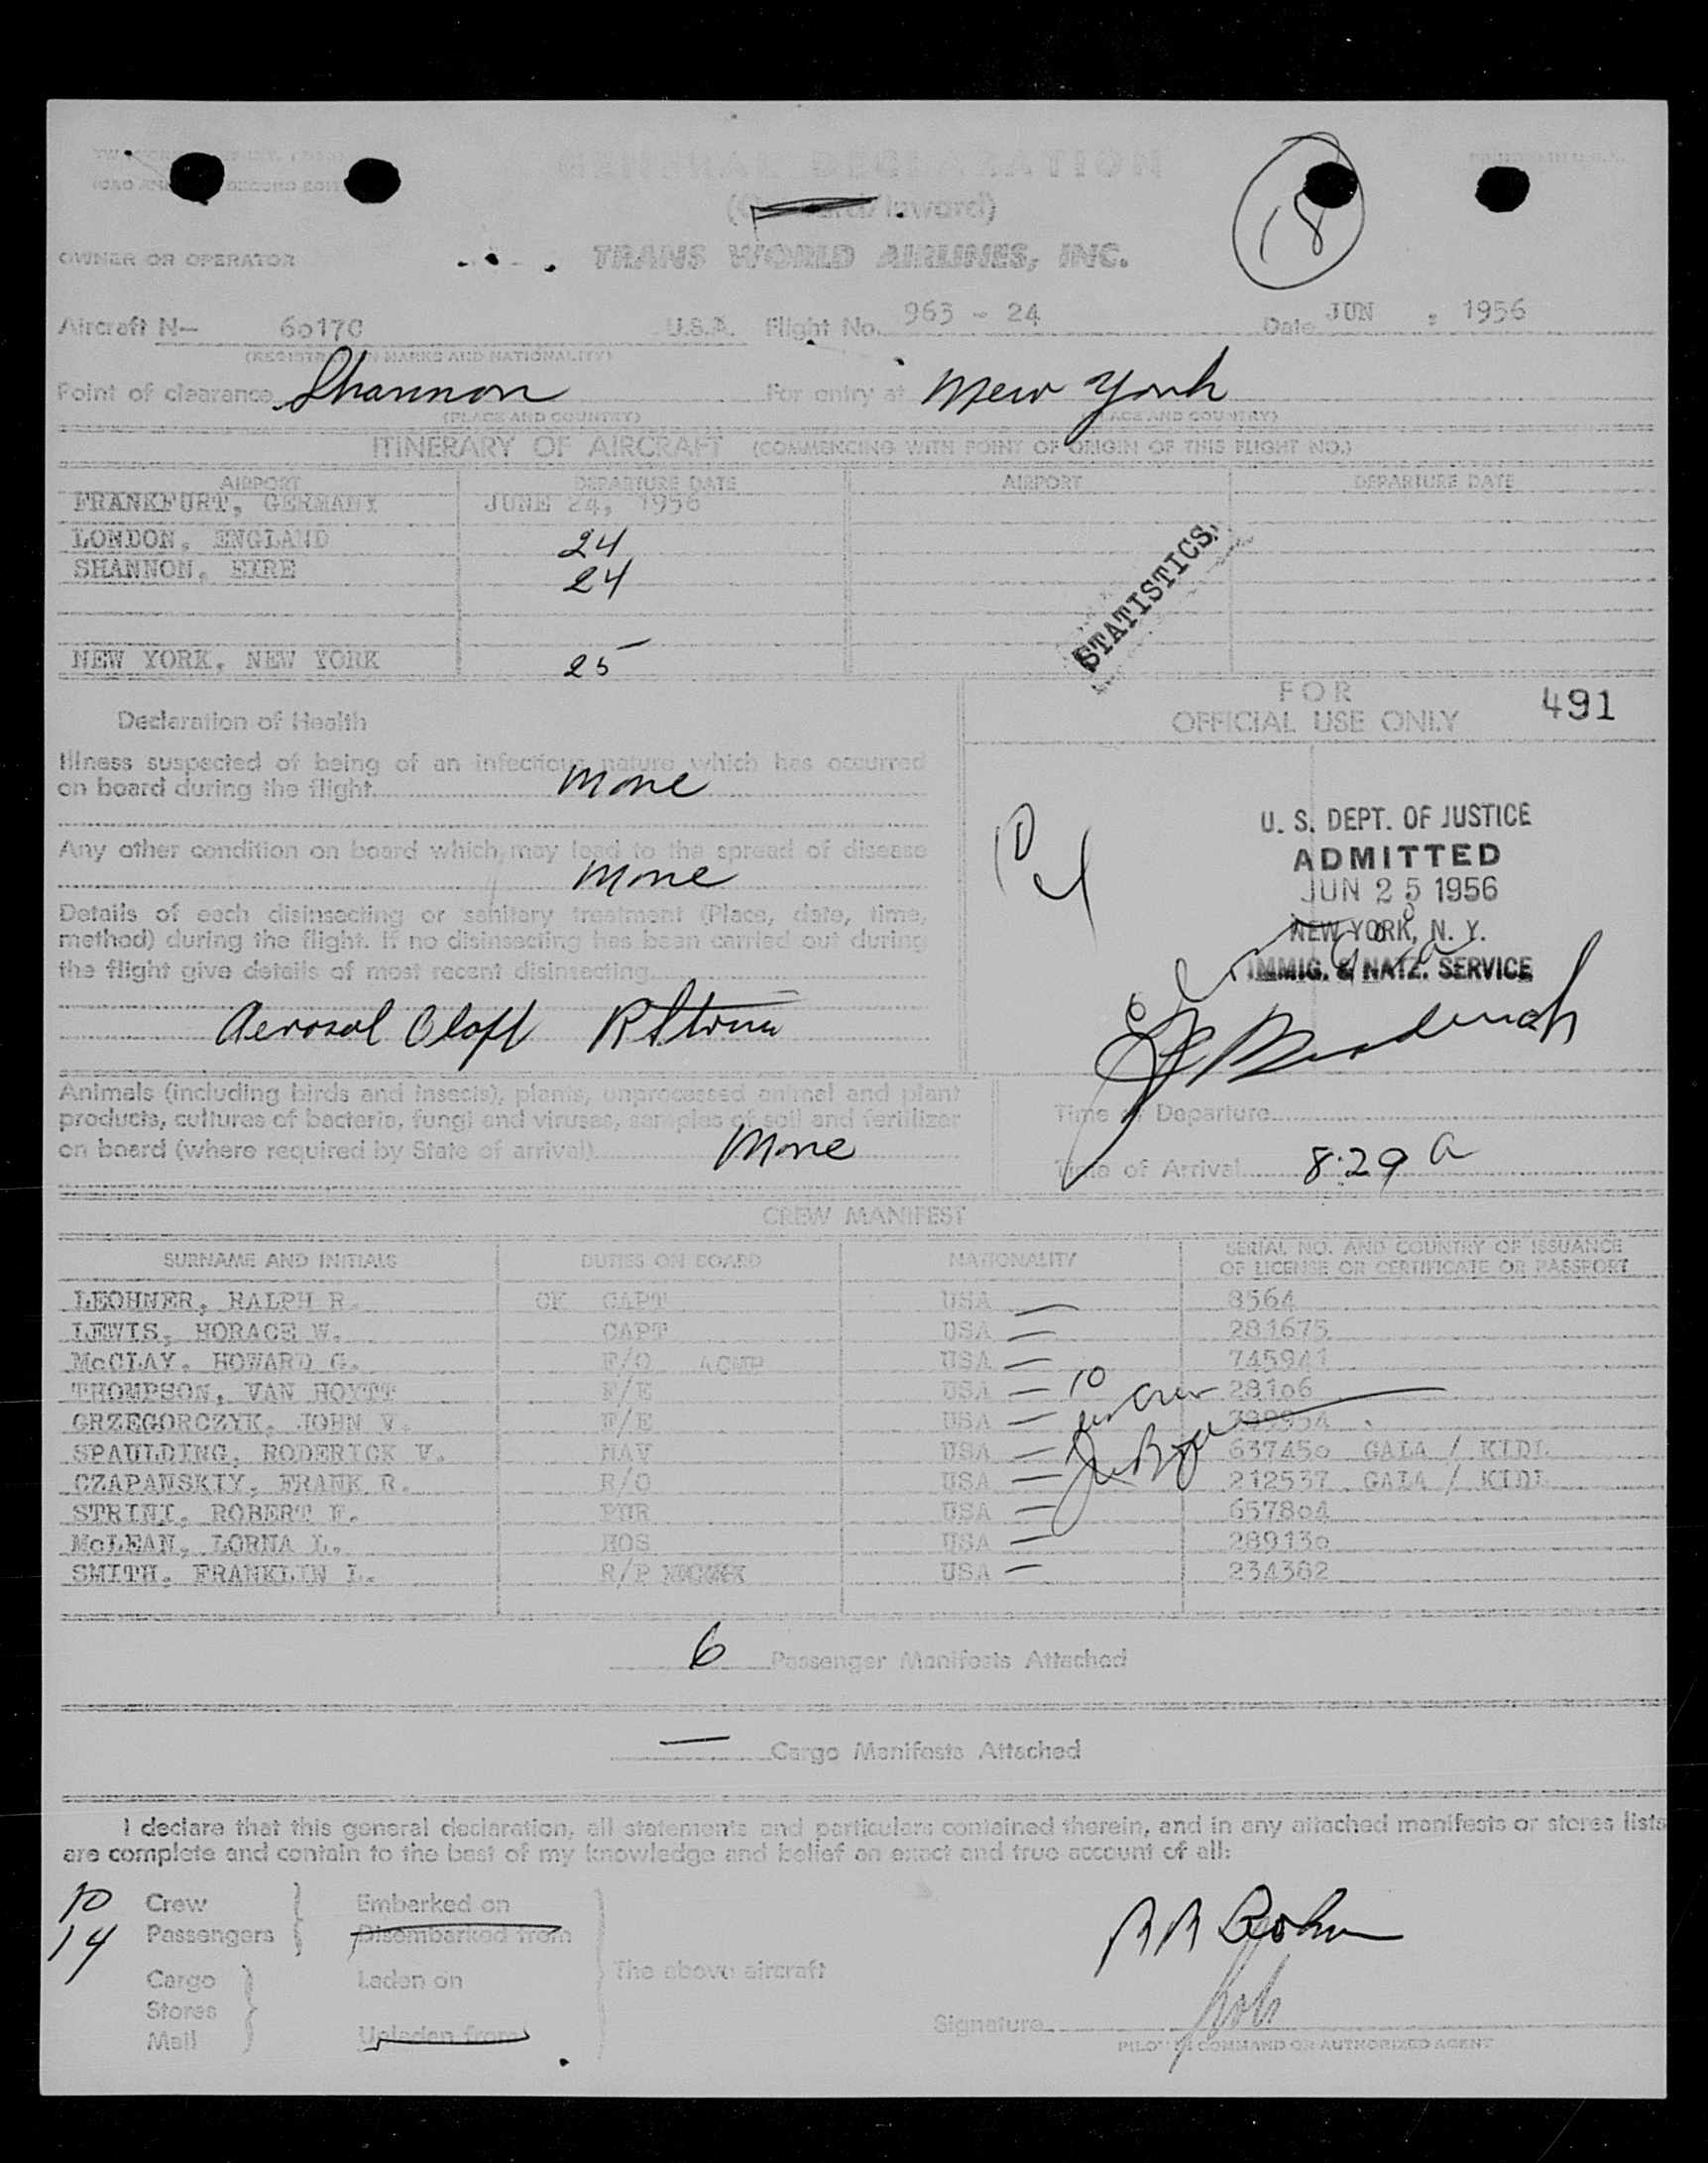 GENERAL DECLARATION
(Outward/Inward)
18
PRINTED IN U.S.A.
OWNER OR OPERATOR TRANS WORLD AIRLINES, INC.
Aircraft N- 6017C U.S.A. Flight No. 963 - 24 Date JUN , 1956
(REGISTRATION MARKS AND NATIONALITY)
Point of clearance Shannon For entry at New York
(PLACE AND COUNTRY) (PLACE AND COUNTRY)
ITINERARY OF AIRCRAFT (COMMENCING WITH POINT OF ORIGIN OF THIS FLIGHT NO.)
AIRPORT DEPARTURE DATE AIRPORT DEPARTURE DATE
FRANKFURT, GERMANY JUNE 24, 1956
LONDON, ENGLAND 24
SHANNON, EIRE 24
STATISTICS
NEW YORK, NEW YORK 25
FOR
OFFICIAL USE ONLY 491
Declaration of Health
Illness suspected of being of an infectious nature which has occurred
on board during the flight None
Any other condition on board which may lead to the spread of disease
None
Details of each disinsecting or sanitary treatment (Place, date, time,
method) during the flight. If no disinsecting has been carried out during
the flight give details of most recent disinsecting
Aerosol Aloft R Strini
U. S. DEPT. OF JUSTICE
ADMITTED
JUN 25 1956
NEW YORK, N. Y.
IMMIG. & NATZ. SERVICE
Animals (including birds and insects), plants, unprocessed animal and plant
products, cultures of bacteria, fungi and viruses, samples of soil and fertilizer
on board (where required by State of arrival) None
Time of Departure
Time of Arrival 8:29 A
CREW MANIFEST
SURNAME AND INITIALS DUTIES ON BOARD NATIONALITY SERIAL NO. AND COUNTRY OF ISSUANCE
OF LICENSE OR CERTIFICATE OR PASSPORT
LEOHNER, RALPH R. CK CAPT USA 8564
LEWIS, HORACE W. CAPT USA 281675
McCLAY, HOWARD G. F/O ACMP USA 745941
THOMPSON, VAN HOYTT F/E USA 28106
GRZEGORCZYK, JOHN V. F/E USA
SPAULDING, RODERICK V. NAV USA 637450 GALA / KIDL
CZAPANSKIY, FRANK R. R/O USA 212537 GALA / KIDL
STRINI, ROBERT F. PUR USA 657804
McLEAN, LORNA L. HOS USA 289130
SMITH, FRANKLIN L. R/P USA 234382
10
Crew
6 Passenger Manifests Attached
— Cargo Manifests Attached
I declare that this general declaration, all statements and particulars contained therein, and in any attached manifests or stores lists
are complete and contain to the best of my knowledge and belief an exact and true account of all:
10 Crew Embarked on
14 Passengers Disembarked from
Cargo Laden on The above aircraft
Stores
Mail Unladen from
Signature
PILOT IN COMMAND OR AUTHORIZED AGENT